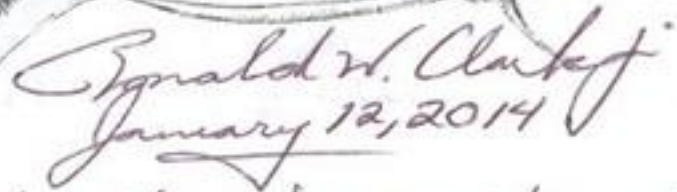 Ronald W. Clark Jr
January 12, 2014